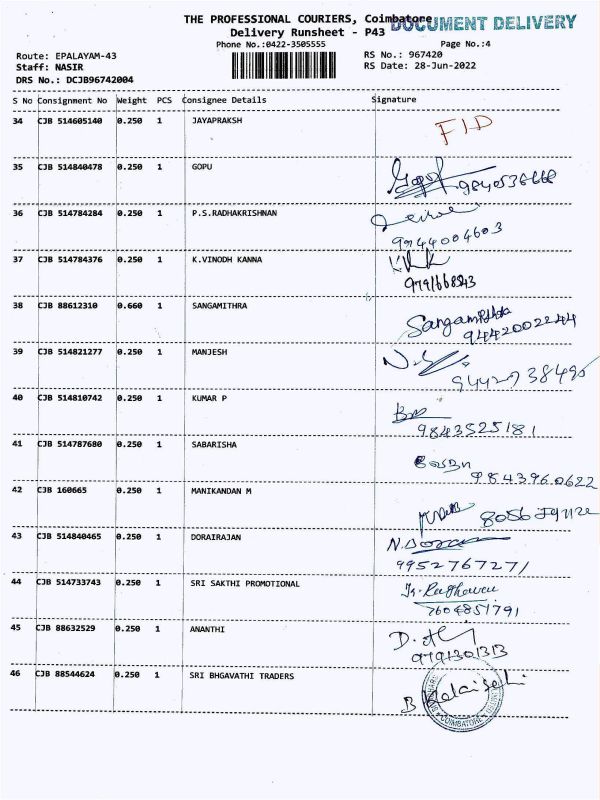 THE PROFESSIONAL COURIERS, Coimbatore
DOCUMENT DELIVERY
Delivery Runsheet - P43
Phone No.:0422-3505555
Page No.:4
Route: EPALAYAM-43
RS No.: 967420
Staff: NASIR
RS Date: 28-Jun-2022
DRS No.: DCJB96742004
S No Consignment No Weight PCS Consignee Details Signature
34 CJB 514605140 0.250 1 JAYAPRAKSH
35 CJB 514840478 0.250 1 GOPU
36 CJB 514784284 0.250 1 P.S.RADHAKRISHNAN
9944004603
37 CJB 514784376 0.250 1 K.VINODH KANNA
9791668543
38 CJB 88612310 0.660 1 SANGAMITHRA
Sangamithra
9442002244
39 CJB 514821277 0.250 1 MANJESH
40 CJB 514810742 0.250 1 KUMAR P
9843525181
41 CJB 514787680 0.250 1 SABARISHA
9843960622
42 CJB 160665 0.250 1 MANIKANDAN M
43 CJB 514840465 0.250 1 DORAIRAJAN
9952767271
44 CJB 514733743 0.250 1 SRI SAKTHI PROMOTIONAL
7604851791
45 CJB 88632529 0.250 1 ANANTHI
9791301313
46 CJB 88544624 0.250 1 SRI BHGAVATHI TRADERS
COIMBATORE